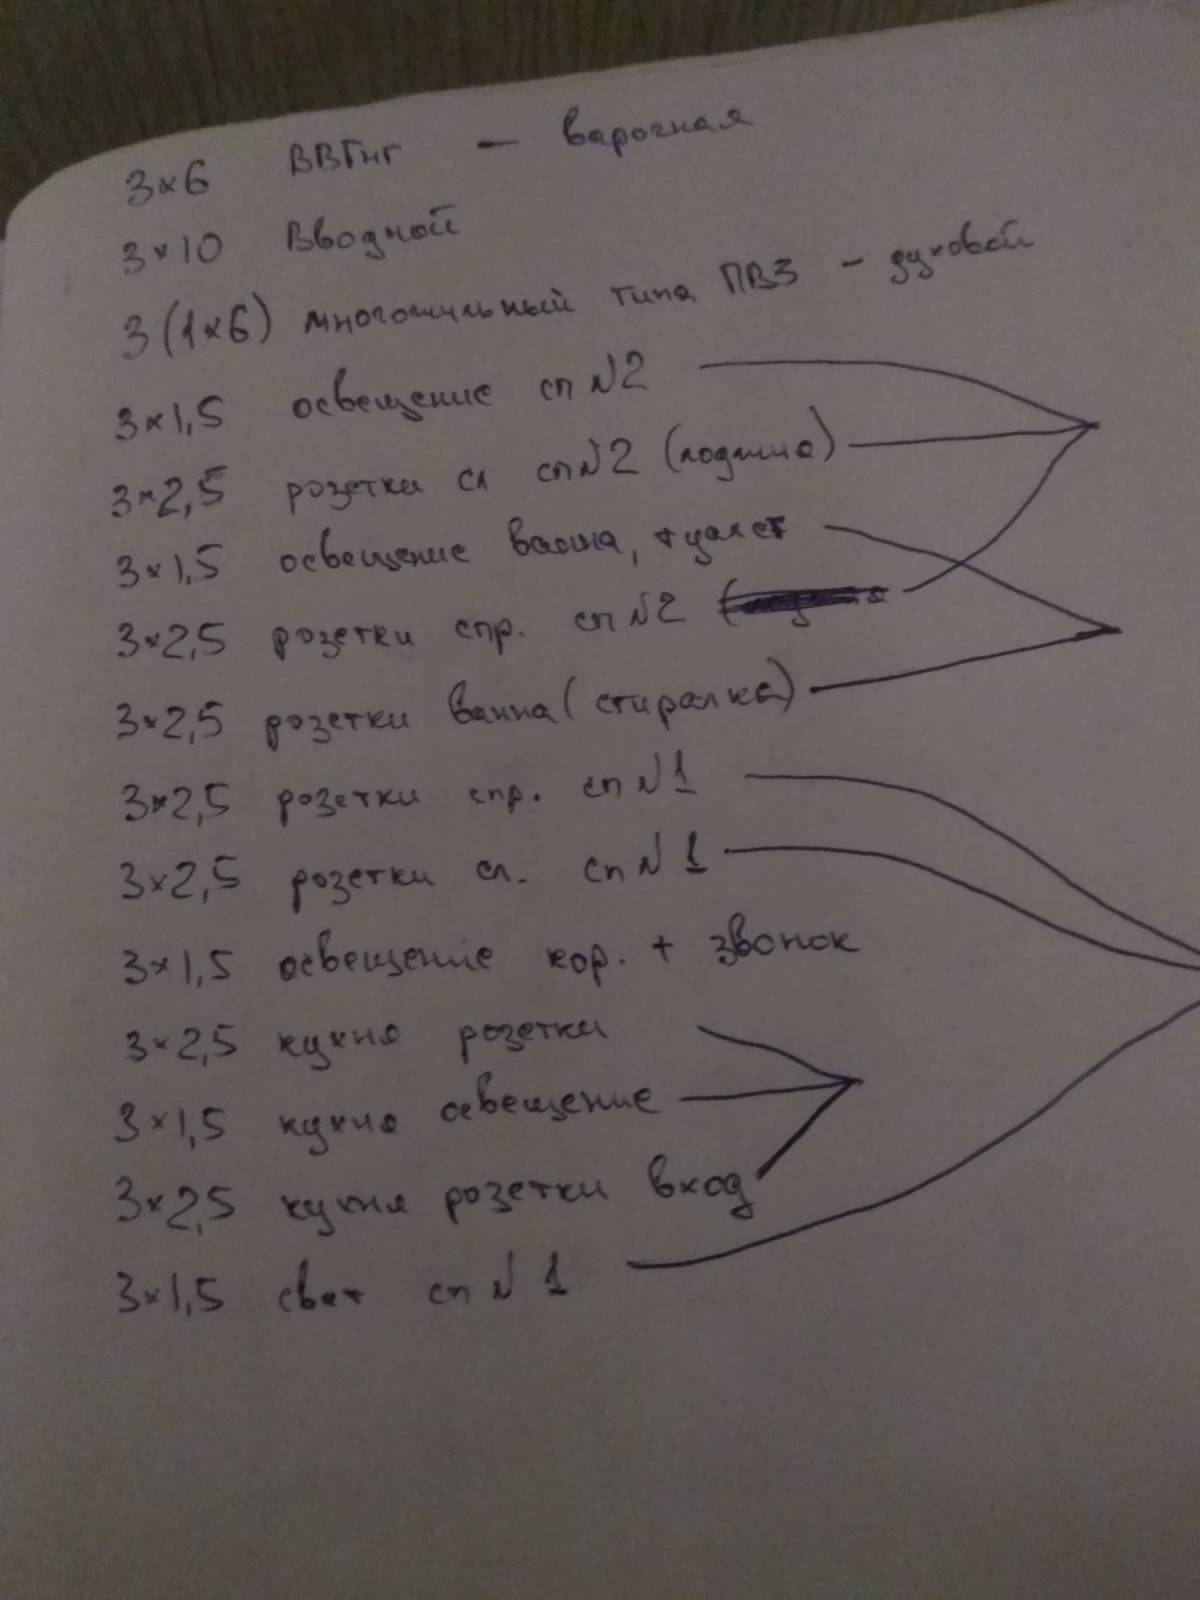 3×6 ВВГнг — варочная
3×10 Вводной
3(1×6) многожильный типа ПВ3 - духовой
3×1,5 освещение сп №2
3×2,5 розетки сл сп №2 (лоджия)
3×1,5 освещение ванна, туалет
3×2,5 розетки спр. сп №2
3×2,5 розетки ванна (стиралка)
3×2,5 розетки спр. сп №1
3×2,5 розетки сл. сп №1
3×1,5 освещение кор. + звонок
3×2,5 кухня розетки
3×1,5 кухня освещение
3×2,5 кухня розетки вход
3×1,5 свет сп №1